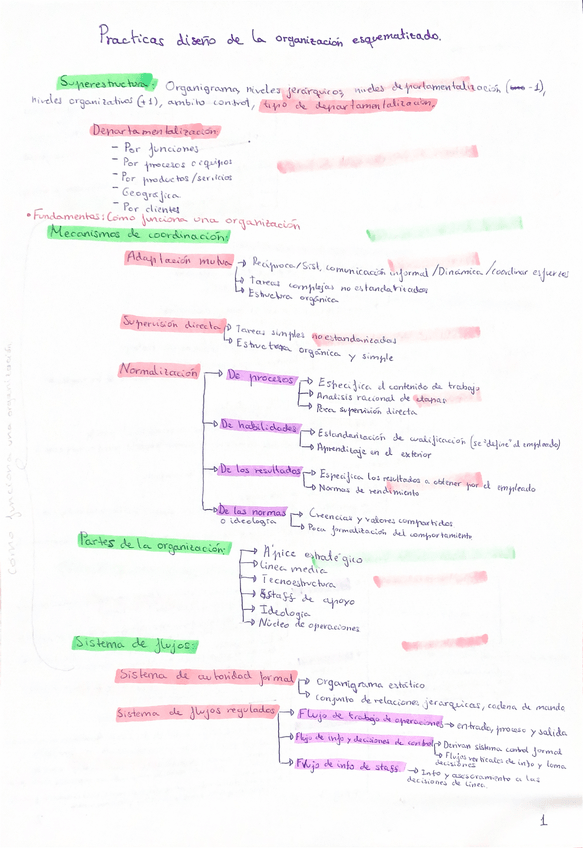 Practicas diseño de la organización esquematizado.
Superestructura: Organigrama, niveles jerárquicos, niveles departamentalización (-1),
niveles organizativos (+1), ambito control, tipo de departamentalización.
Departamentalización
- Por funciones
- Por procesos o equipos
- Por productos/servicios
- Geográfica
- Por clientes
• Fundamentos: Cómo funciona una organización
Mecanismos de coordinación:
Adaptación mutua → Recíproca/Sist. comunicación informal/Dinámica/coordinar esfuerzos
→ Tareas complejas no estandarizadas
→ Estructura orgánica
Supervisión directa → Tareas simples no estandarizadas
→ Estructura orgánica y simple
Normalización → De procesos → Especifica el contenido de trabajo
→ Analisis racional de etapas
→ Poca supervisión directa
→ De habilidades → Estandarización de cualificación (se "define" al empleado)
→ Aprendizaje en el exterior
→ De los resultados → Especifica los resultados a obtener por el empleado
→ Normas de rendimiento
→ De las normas → Creencias y valores compartidos
o ideología → Poca formalización del comportamiento
Partes de la organización: → Ápice estratégico
→ Línea media
→ Tecnoestructura
→ Staff de apoyo
→ Ideología
→ Núcleo de operaciones
como funciona una organización
Sistema de flujos:
Sistema de autoridad formal → organigrama estático
→ conjunto de relaciones jerarquicas, cadena de mando
Sistema de flujos regulados → Flujo de trabajo de operaciones → entrada, proceso y salida
→ Flujo de info y decisiones de control → Derivan sistema control formal
→ Flujos verticales de info y toma
decisiones
→ Flujo de info de staff → Info y asesoramiento a las
decisiones de línea.
1